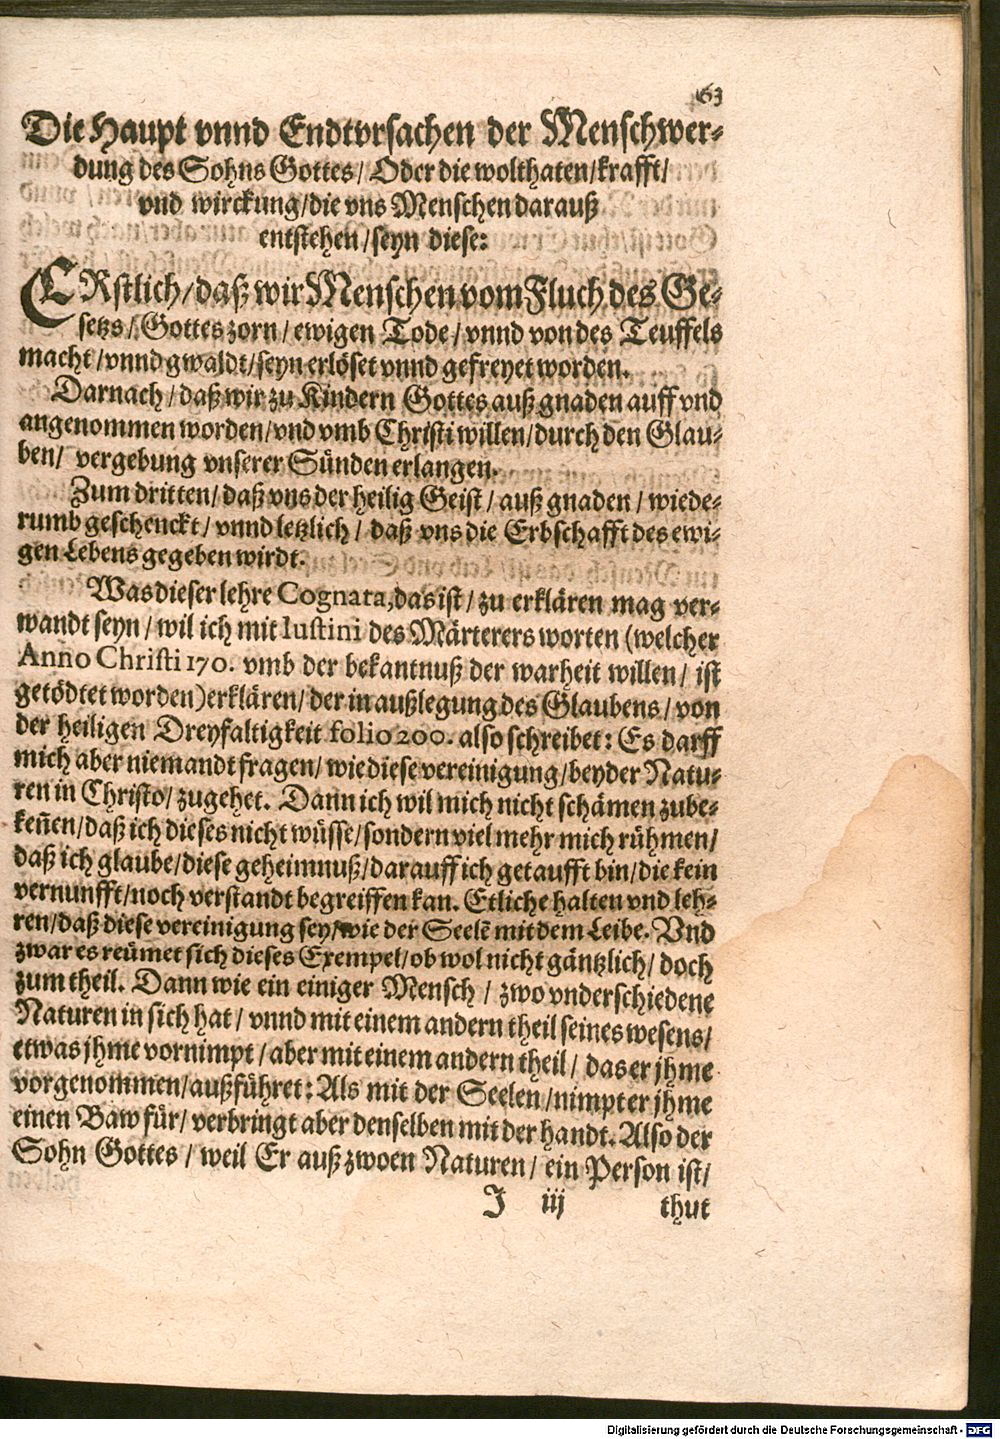 63
Die Haupt vnnd Endtvrsachen der Menschwer⸗
dung des Sohns Gottes/ Oder die wolthaten/krafft/
vnd wirckung/die vns Menschen darauß
entstehen/seyn diese:
ERstlich/daß wir Menschen vom Fluch des Ge⸗
setzs/ Gottes zorn/ ewigen Tode/ vnnd von des Teuffels
macht/vnnd gwaldt/seyn erlöset vnnd gefreyet worden.
Darnach/daß wir zu Kindern Gottes auß gnaden auff vnd
angenommen worden/vnd vmb Christi willen/durch den Glau⸗
ben/ vergebung vnserer Sünden erlangen.
Zum dritten/ daß vns der heilig Geist/ auß gnaden/ wiede⸗
rumb geschenckt/ vnnd letzlich/ daß vns die Erbschafft des ewi⸗
gen Lebens gegeben wirdt.
Was dieser lehre Cognata, das ist/ zu erklären mag ver⸗
wandt seyn/ wil ich mit Iustini des Märterers worten (welcher
Anno Christi 170. vmb der bekantnuß der warheit willen/ ist
getödtet worden) erklären/ der in außlegung des Glaubens/ von
der heiligen Dreyfaltigkeit folio 200. also schreibet: Es darff
mich aber niemandt fragen/ wie diese vereinigung/beyder Natu⸗
ren in Christo/ zugehet. Dann ich wil mich nicht schämen zube⸗
keñen/daß ich dieses nicht wüsse/sondern viel mehr mich rühmen/
daß ich glaube/diese geheimnuß/darauff ich getaufft bin/die kein
vernunfft/noch verstandt begreiffen kan. Etliche halten vnd leh⸗
ren/daß diese vereinigung sey/wie der Seelē mit dem Leibe. Vnd
zwar es reümet sich dieses Exempel/ob wol nicht gäntzlich/ doch
zum theil. Dann wie ein einiger Mensch/ zwo vnderschiedene
Naturen in sich hat/ vnnd mit einem andern theil seines wesens/
etwas jhme vornimpt/aber mit einem andern theil/ das er jhme
vorgenommen/außführet: Als mit der Seelen/nimpt er jhme
einen Baw für/ verbringt aber denselben mit der handt. Also der
Sohn Gottes/ weil Er auß zwoen Naturen/ ein Person ist/
J iij thut
Digitalisierung gefördert durch die Deutsche Forschungsgemeinschaft - DFG